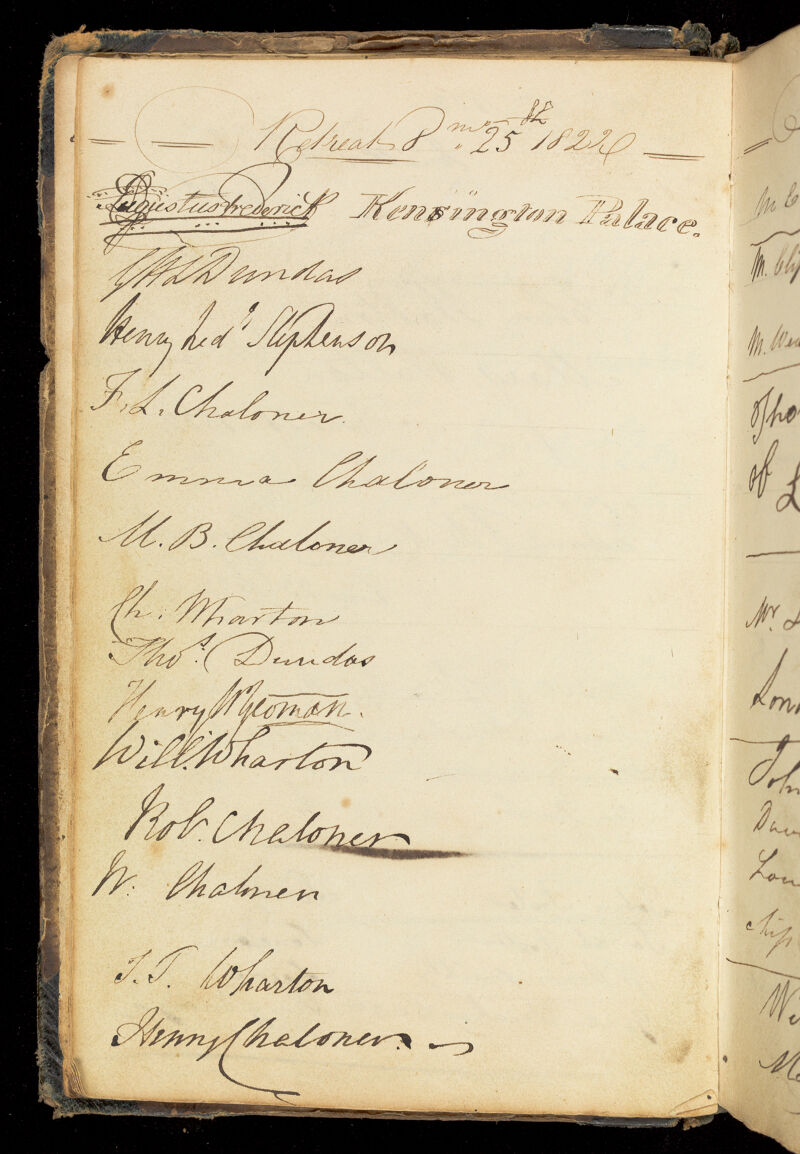 Retreat 8 mo 25th 1822
Augustus Frederick Kensington Palace.
Dundas
Henry Fred. Stephenson
F. L. Chaloner.
Emma Chaloner
M. B. Chaloner
Ch. Wharton
Thos. Dundas
Henry W Yeoman.
Will. Wharton
Rob. Chaloner
W. Chaloner
J. T. Wharton
Henry Chaloner.
M
M. Cli
M. We
of
Mr.
Lon
John
Lon
We